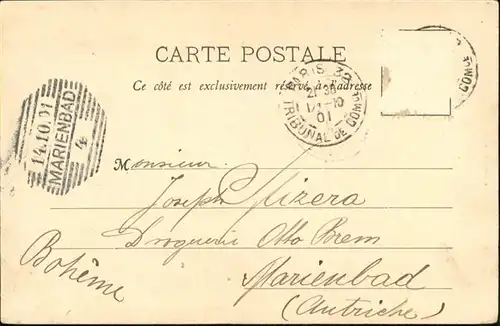 CARTE POSTALE
Ce côté est exclusivement réservé à l'adresse
PARIS 32
21 30
11-10
01
TRIBUNAL DE COMMCE
COMMCE
14.10.01
MARIENBAD
Monsieur
Joseph Mizera
Droguerie Otto Brem
Bohême
Marienbad
(Autriche)